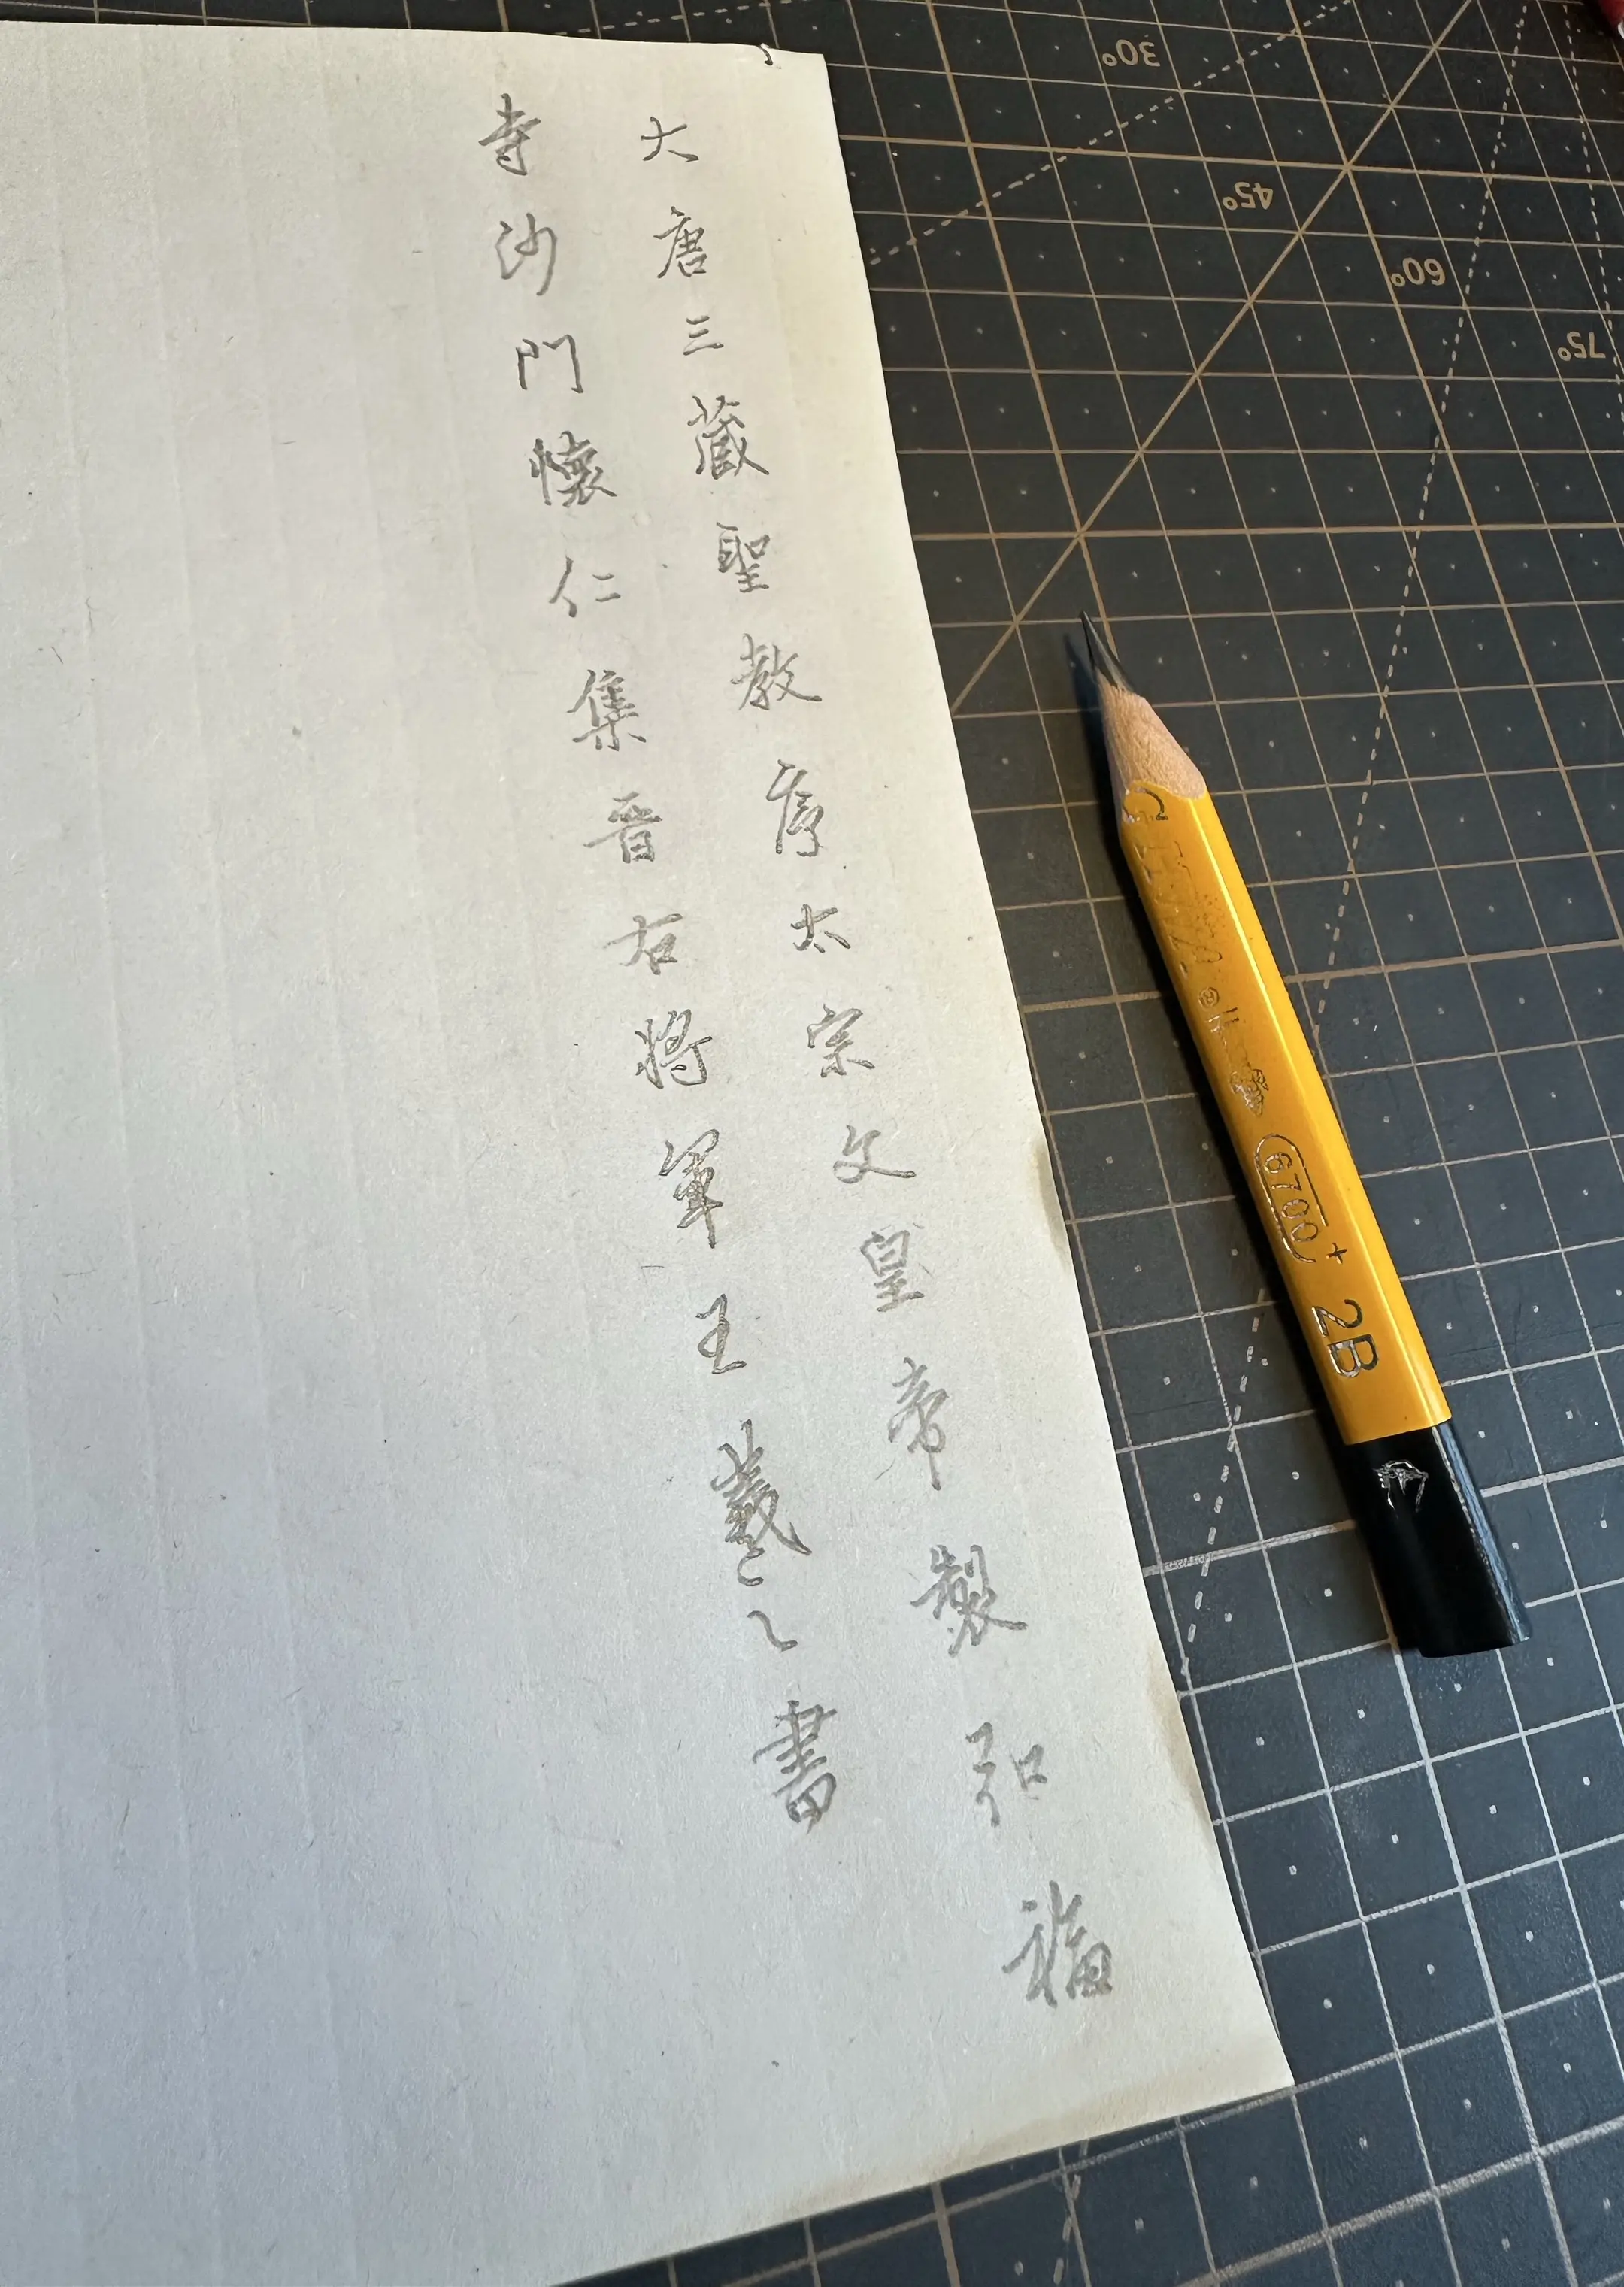 大唐三藏聖教序太宗文皇帝製弘福
寺沙門懷仁集晋右將軍王羲之書
30°
45°
60°
75°
6700+ 2B